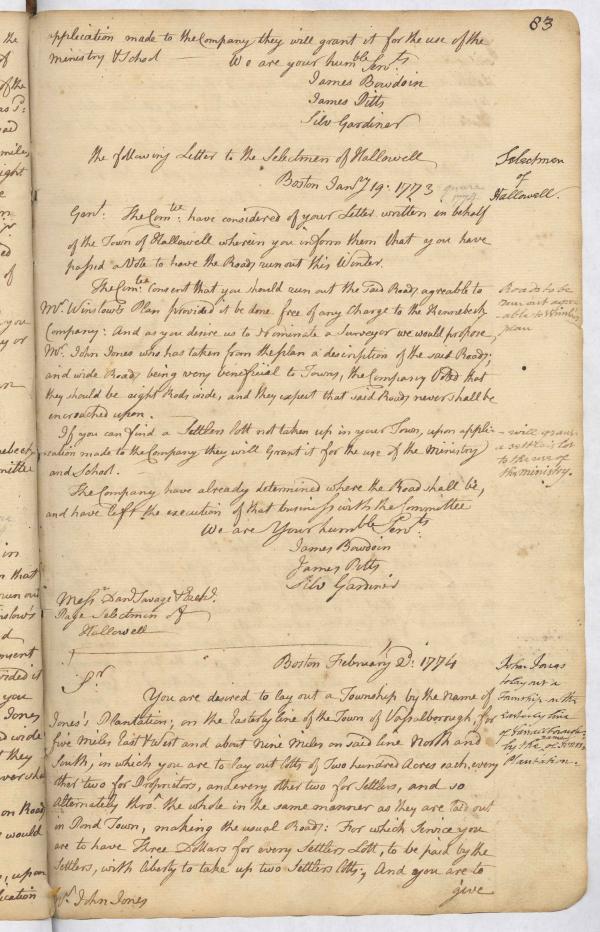 83
application made to the Company they will grant it for the use of the
ministry & School — We are your humble Servts
James Bowdoin
James Pitts
Silv Gardiner
The following Letter to the Selectmen of Hallowell
Selectmen
of
Hallowell.
Boston Jany 19. 1773
Gent: The Comtee: have considered of your Letter written in behalf
of the Town of Hallowell wherein you inform them that you have
passed a Vote to have the Roads run out this Winter.
The Comtee: Consent that you should run out the said Roads agreable to
Mr. Winslow's Plan provided it be done free of any Charge to the Kennebeck
Company: And as you desire us to Nominate a Surveyor we would propose
Mr. John Jones who has taken from the plan a description of the said Roads;
and wide Roads being very beneficial to Towns, the Company Voted that
they should be eight Rods, wide, and they expect that said Roads never shall be
encroached upon.
Roads to be
run out agree-
able to Winslow's
plan
If you can find a Settlers lott not taken up in your Town, upon appli-
cation made to the Company they will Grant it for the use of the Ministry
and School.
— will grant
a settlers lot
to the use of
the ministry.
The Company have already determined where the Road shall be,
and have left the execution of that business with the Committee
We are Your humble Servts
James Bowdoin
James Pitts
Silv Gardiner
Messrs Danl Savage & Ezekl.
Page Selectmen of
Hallowell
Boston February 2d: 1774
Sr.
You are desired to lay out a Township by the Name of
Jones's Plantation; on the Easterly line of the Town of Vassalborough, for
five Miles East & West and about Nine Miles on said line North and
South, in which you are to lay out Lotts of Two hundred Acres each, every
other two for Proprietors, and every other two for Settlers, and so
Alternately thro' the whole in the same manner as they are laid out
in Pond Town, making the usual Roads: For which Service you
are to have Three Dollars for every Settlers Lott, to be paid by the
Settlers, with liberty to take up two Settlers Lotts; And you are to
give
John Jones
to lay out a
Township on the
easterly line
of Vassalborough
by the name of Jones's
Plantation.
Mr. John Jones